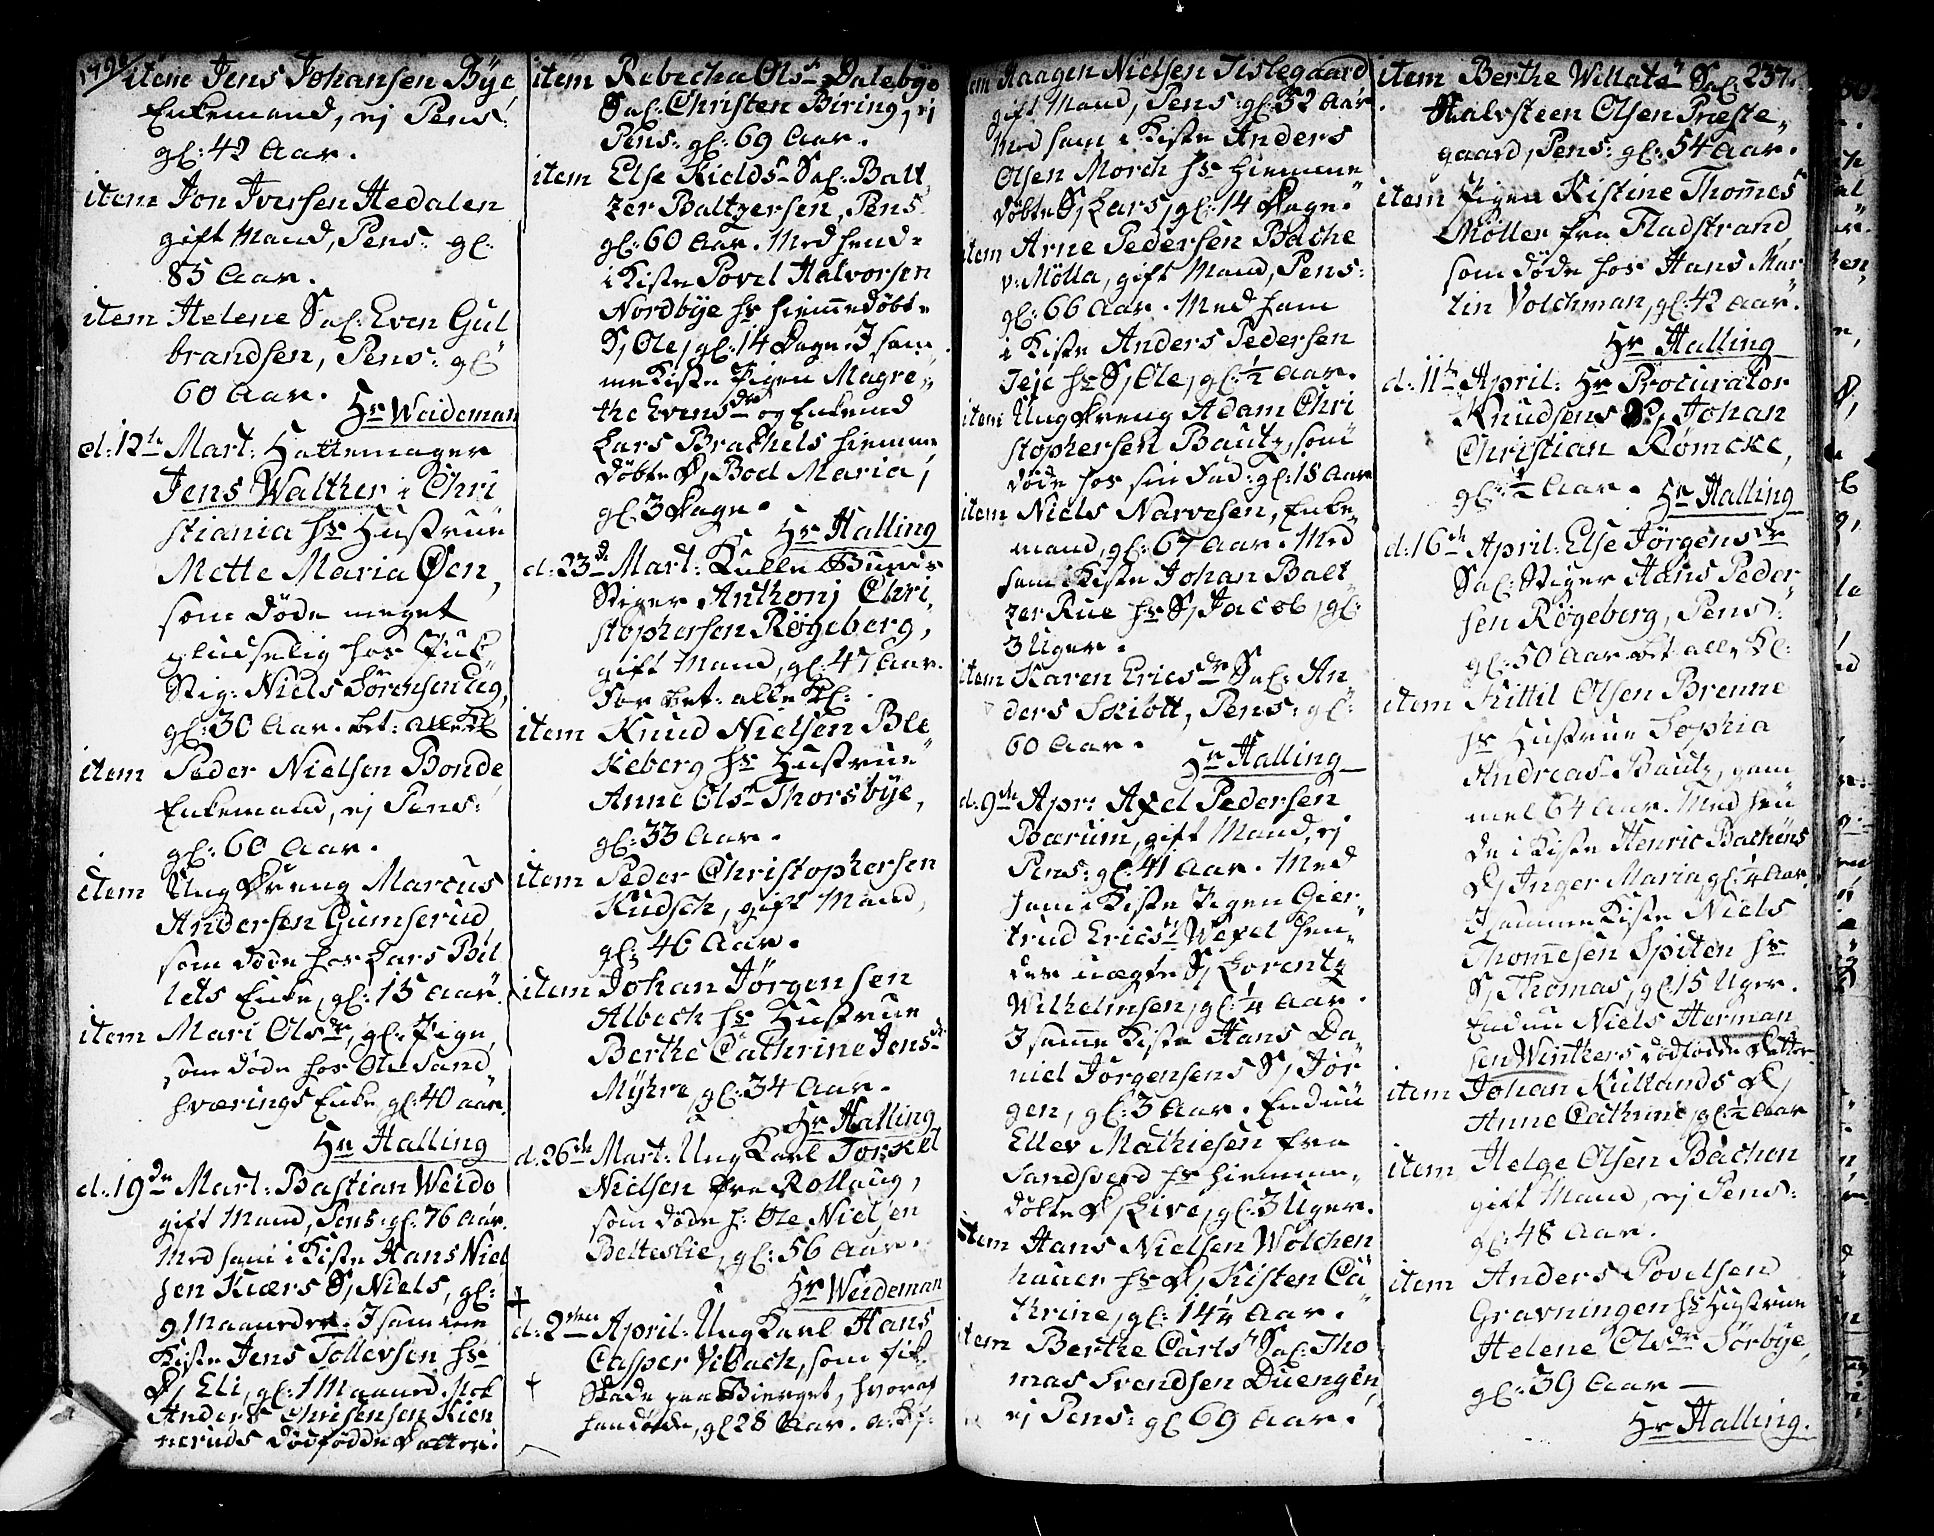 item Jens Johansen Bÿe
Enkemand, ej Pens:
gl: 42 Aar.
item Jon Iversen Hedalen
gift Mand, Pens: gl:
85 Aar.
item Helene Sal: Even Gul
brandsen, Pens: gl:
60 Aar.
Hr Weideman
d: 12te Mart: Hattemager
Jens Walther i Chri
stiania hs Hustrue
Mette Maria Øen,
som døde meget
hos
Stig: Niels Sørensen
gl: 30 Aar. bet: alle Kl
item Peder Nielsen Bonde,
Enkemand, ej Pens:
gl: 60 Aar.
item Ung Dreng Marcus
Andersen Gumserud,
som døde hos Lars Bil
lets Enke, gl: 15 Aar.
item Mari Olsdr, gl: Pige,
som døde hos Ole Sand
sværings Enke, gl: 40 aar.
Hr Halling
d: 19de Mart: Bastian Weido
gift Mand, Pens: gl: 76 Aar.
Med ham i Kiste Hans Niel
sen Kiærs S, Niels, gl:
9 Maaneder. I samme
Kiste Jens Tollevsen hs
D, Eli, gl: 1 Maaned. Nok
Anders Christensen Kien
neruds dødfødde Datter.
item Rebecha Olsdr Dalebÿe
Sal: Christen Biring, ej
Pens: gl: 69 Aar.
item Else Kields Sal: Balt
zer Baltzersen, Pens
gl: 60 Aar. Med hende
i Kiste Povel Halvorsen
Nordbÿe hs hiemmedøbte
S, Ole, gl: 14 Dage. I sam
me Kiste Pigen Magre
the Evensdr og Enkemd
Lars Brachels hiemme
døbte D, Bod Maria,
gl: 3 Dage.
Hr Halling
d: 23d Mart: Kulle
Stiger Anthonj Chri
stophersen Røgeberg,
gift Mand, gl: 47 Aar.
For bet: alle Kl:
item Knud Nielsen Ble
keberg hs Hustrue
Anne Olsdr Thorsbÿe,
gl: 33 Aar.
item Peder Christophersen
Kudsch, gift Mand,
gl: 46 Aar.
item Johan Jørgensen
Albech hs Hustrue
Berthe Cathrine Jensdr
Mÿhre, gl: 34 Aar.
Hr Halling
d: 26de Mart: Ung Karl Torkel
Nielsen fra Rollaug,
som døde h: Ole Nielsen
Belteslie, gl: 56 Aar.
Hr Weideman
d: 2den April: Ung Karl Hans
Casper Vibach, som fik
Skade paa Bierget, hvoraf
han døde, gl 28 Aar.
item Haagen Nielsen Tislegaard
gift Mand, Pens: gl: 52 Aar
Med ham i Kiste Anders
Olsen Morch hs hiemme
døbte S, Lars, gl: 14 Dage.
item Arne Pedersen Bache
v: Mölla, gift Mand, Pens:
gl: 66 Aar. Med ham
i Kiste Anders Pedersen
Teje hs S, Ole, gl: ½ Aar.
item Ung Dreng Adam Chri
stophersen Bautz, som
døde hos sin Fad: gl: 18 Aar
item Niels Narvesen, Enke
mand, gl: 67 Aar. Med
ham i Kiste Johan Balt
zer Rue hs S, Jacob, gl:
3 Uger.
item Karen Ericsdr Sal: An
ders Skiött, Pens: gl:
60 Aar.
Hr Halling
d: 9de Apr: Axel Pedersen
Bærum, gift Mand, ej
Pens: gl: 41 Aar. Med
ham i Kiste Pigen Gier
trud Erics Wexel hen
des uægte S, Lorentz
Wilhelmsen, gl: ¼ Aar.
I samme Kiste Hans Da
niel Jørgensens S, Jør
gen, gl: 3 Aar. Endnu
Ellev Mathiesen fra
Sandsverd hs hiemme
døbte D, Live, gl: 3 Uger.
item Hans Nielsen Wölchen
hauer hs D, Kisten Ca
thrine, gl: 14¼ Aar.
item Berthe Carls Sal: Tho
mas Svendsen Duengen,
ej Pens: gl 69 Aar.
237.
item Berthe Willats Sal:
Halvsteen Olsen Præste
gaard, Pens: gl: 54 Aar.
item Pigen Kistine Thomes
Möller fra Fladstrand,
som døde hos Hans Mar
tin Volchman, gl: 42 Aar.
Hr Halling
d: 11te April: Hr Procurator
Knudsens S, Johan
Christian Rømcke,
gl: ½ Aar.
Hr Halling
d: 16de April: Else Jørgensdr
Sal: Stiger Hans Peder
sen Røgeberg, Pens:
gl: 50 Aar bet: alle Kl:
item Kittil Olsen Brenne
hs Hustrue Sophia
Andreas Bautz, gam
mel 64 Aar. Med hen
de i Kiste Henric Bachens
D, Inger Maria, gl: ¼ Aar.
I samme Kiste Niels
Thomesen Spiten hs
S, Thomas, gl 15 Uger.
Endnu Niels Herman
sen Winthers dødfødde Datter
item Johan Kullands D,
Anne Cathrine, gl: ½ Aar
item Helge Olsen Bachen
gift Mand, ej Pens:
gl: 48 Aar.
item Anders Povelsen
Gravningen hs Hustrue
Helene Olsdr Sørbye,
gl: 39 Aar
Hr Halling.